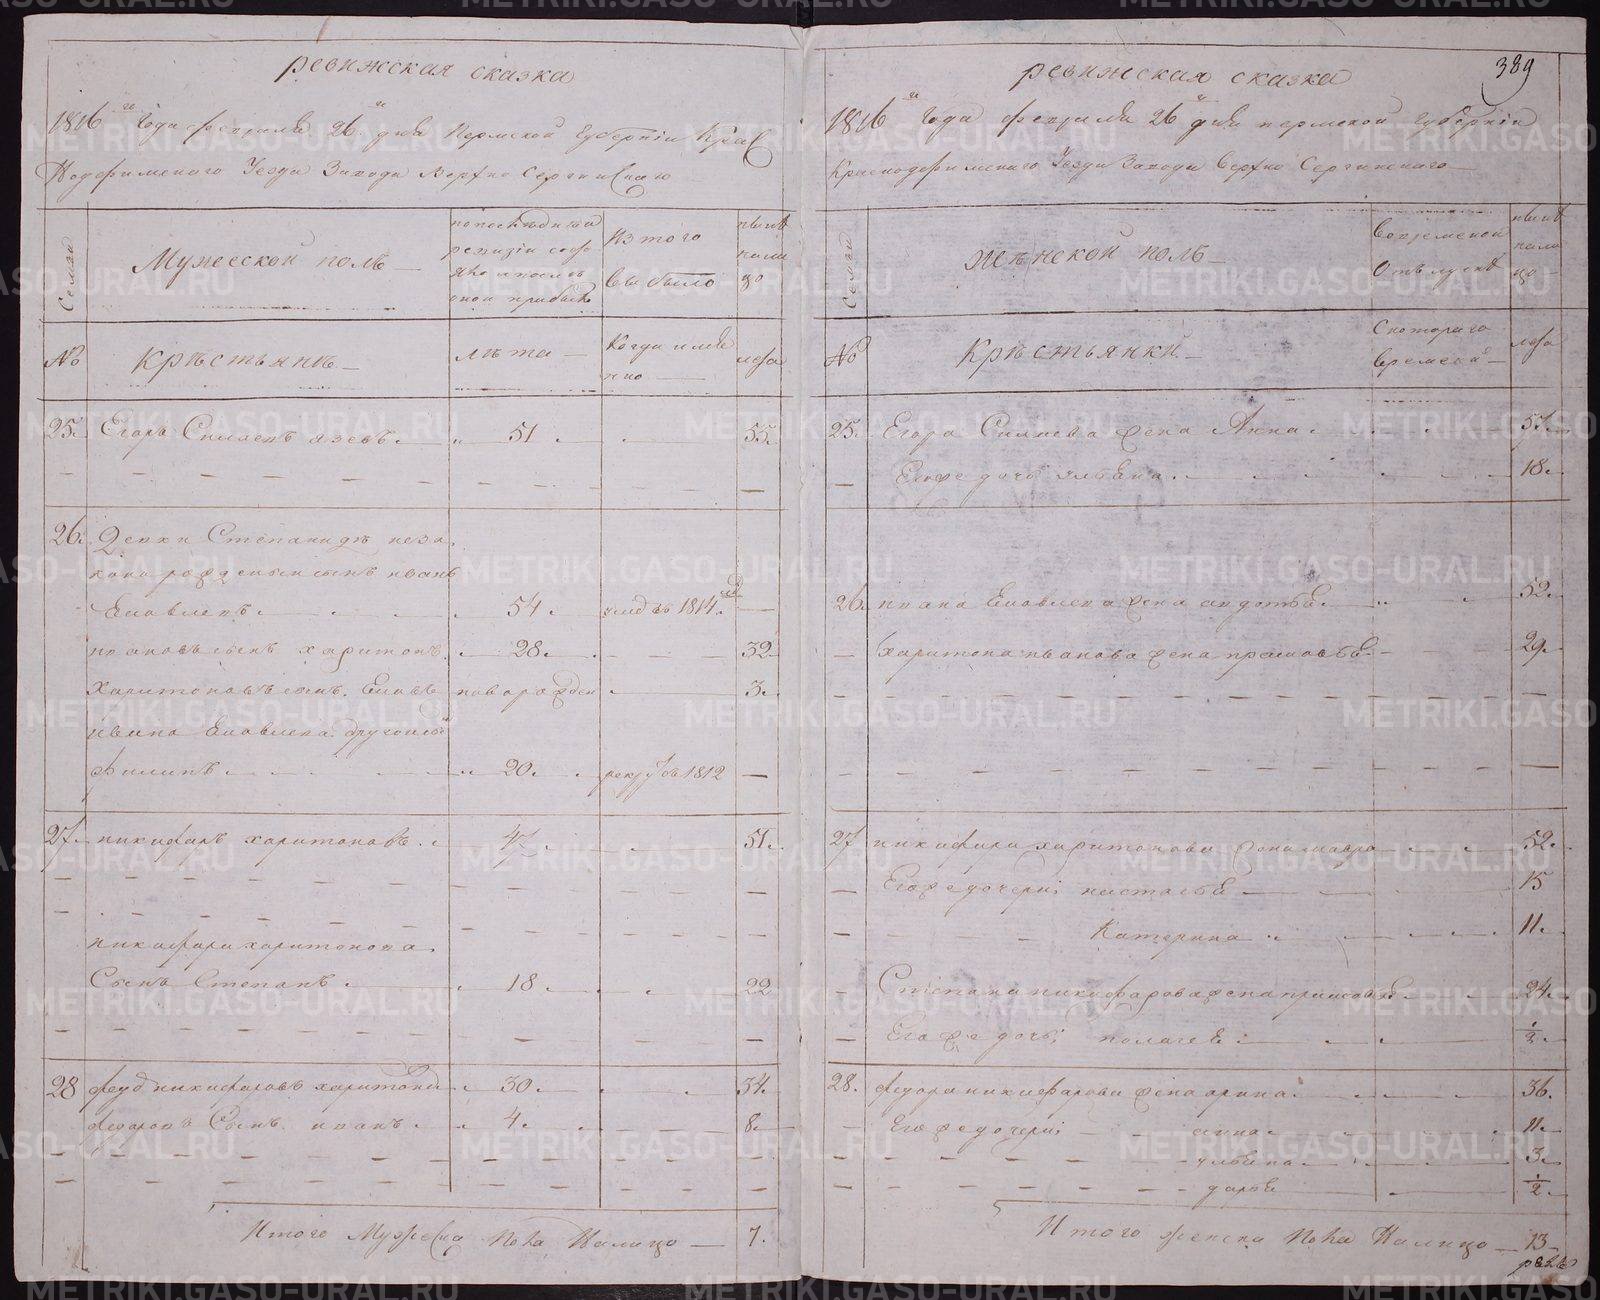 ревижская сказка
1816го Года февраля 26го дня Пермской Губернїи Крас
Нодфимского Уезда Завода Верхно Сергинскаго
Семеи
Мужеской полъ
по последней
ревизїи состо
яло и после
оной прибыло
Из того
Выбыло
ныне
нали
цо
№
Кръстьянъ
лъта
Когда имян
но
лета
25. Егоръ Силаевъ язевъ. 51. 55.
26. Девки Степаниды неза
конорожденый сынъ иванъ
Ековлевъ. 54. умъ въ 1814.
ивановъ сынъ харитонъ. 28. 32
Харитоновъ сынъ. Ековъ новорожден 3.
ивана Ековлева другой сынъ
филипъ 20. рекрутъ 1812
27. никифаръ харитоновъ. 47. 51.
никифара харитонова.
Сынъ Степанъ. 18. 22
28 федоръ никифаровъ харитоновъ 30. 34.
федоровъ Сынъ. иванъ. 4. 8.
Итого Мужеска Пола Налицо 7.
389
ревижская сказка
1816го Года февраля 26го дня пермской губернїи
Краснодфимскаго Уезда Завода Верхно Сергинского
Семеи
жънской полъ
Вовременой
Отълучке
ныне
нали
цо
№
Кръстьянки
Скотораго
времени
лета
25. Егора Силаева жена Анна. 57.
Егоже дочь ульяна. 18.
26. ивана Ековлева жена авдотья. 52.
харитона иванова жена прасковья. 29.
27 никифара харитонова жена мавра 52.
Егоже дочери настасья 15
Катерина 11.
Степана никифарова жена прасковья 24.
Егоже дочь пелагея 1/2.
28. федора никифарова жена арина. 36.
Егоже дочери анна. 11.
ульяна 3.
дарья 1/2.
Итого женска Пола Налицо 13